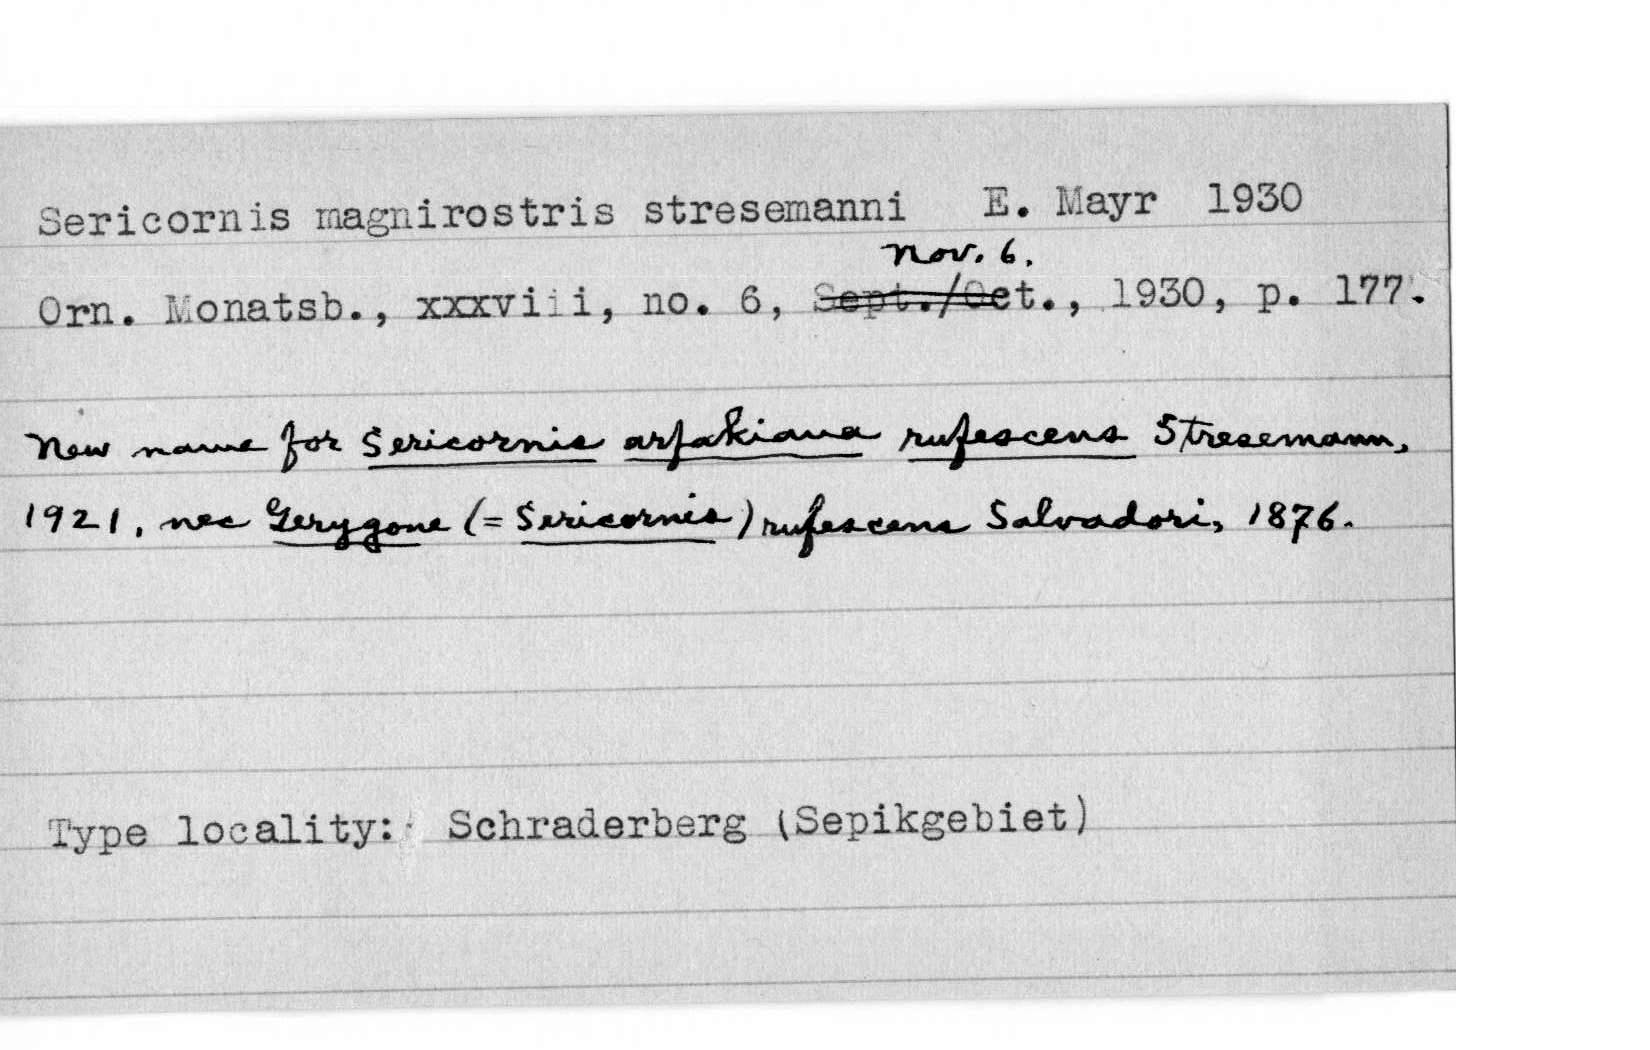 Sericornis magnirostris stresemanni E. Mayr 1930
Nov. 6.
Orn. Monatsb., xxxviii, no. 6, Sept./Oct., 1930, p. 177.
New name for Sericornis arfakiana rufescens Stresemann,
1921, nec Gerygone (= Sericornis) rufescens Salvadori, 1876.
Type locality: Schraderberg (Sepikgebiet)